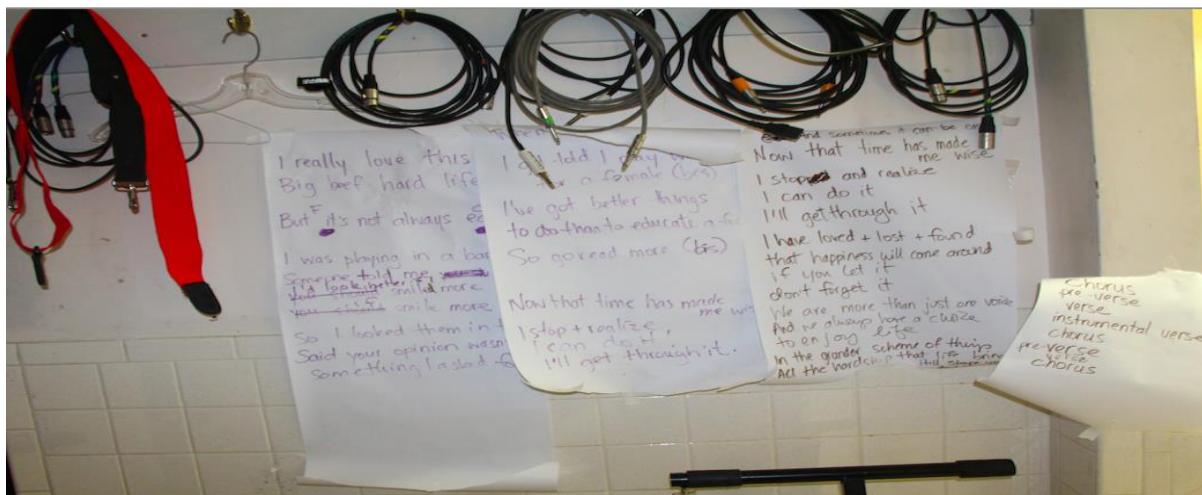 I really love this
Big beef hard life
But it's not always
I was playing in a
Someone told me
I'd look better if
smiled more
smile more
So I looked them in
Said your opinion
something I asked
told I play
for a female (bis)
I've got better things
to do than to educate a
So go read more (bis)
Now that time has made
me
I stop + realize,
I can do it
I'll get through it.
And sometimes it can be
Now that time has made
me wise
I stop and realize
I can do it
I'll get through it
I have loved + lost + found
that happiness will come around
if you let it
don't forget it
We are more than just one voice
And we always have a choice
to enjoy life
In the grander scheme of things
All the hardship that life
Chorus
pre-verse
verse
instrumental verse
chorus
pre-verse
verse
chorus